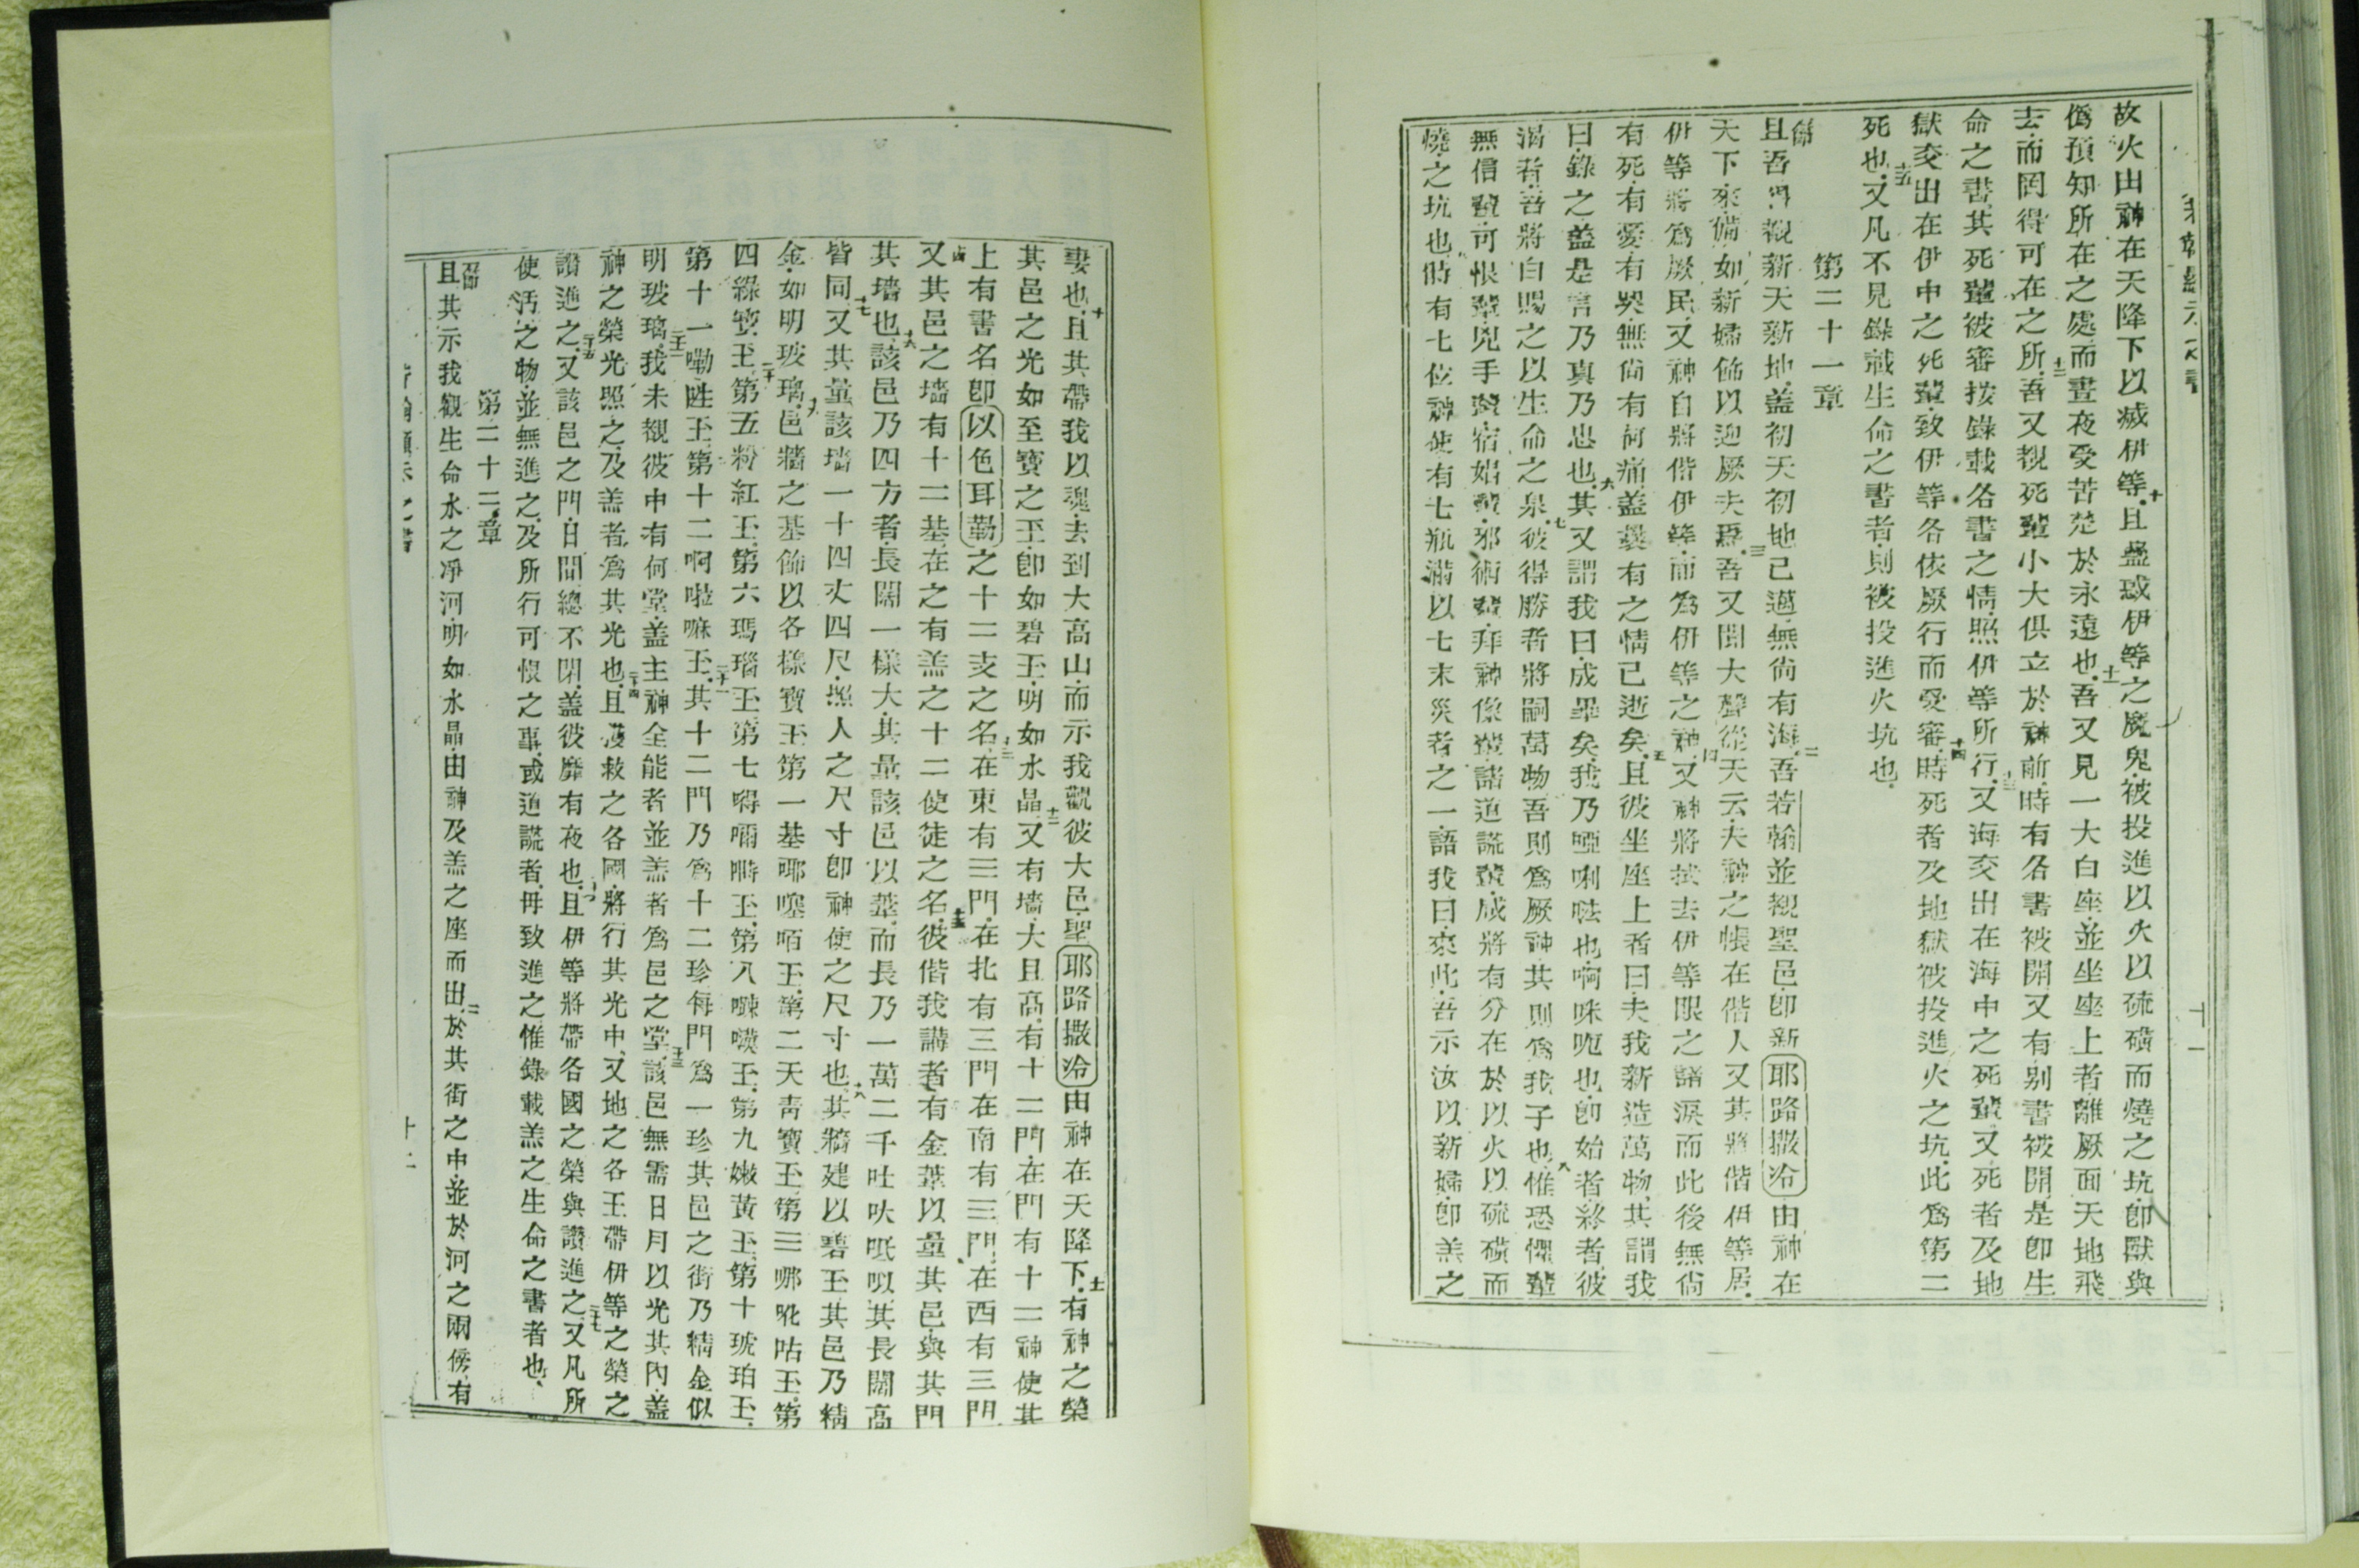 若翰顯示之書
十一
故火由神在天降下以滅伊等十且蠱惑伊等之魔鬼被投進以火以硫磺而燒之坑即獸與
偽預知所在之處而晝夜受苦楚於永遠也十一吾又見一大白座並坐座上者離厥面天地飛
去而罔得可在之所十二吾又覩死輩小大俱立於神前時有各書被開又有別書被開是即生
命之書其死輩被審按錄載各書之情照伊等所行十三又海交出在海中之死輩又死者及地
獄交出在伊中之死輩致伊等各依厥行而受審十四時死者及地獄被投進火之坑此為第二
死也十五又凡不見錄載生命之書者則被投進火坑也
第二十一章
節且吾覩新天新地蓋初天初地已過無尚有海二吾若翰並覩聖邑即新耶路撒冷由神在
天下來備如新婦飾以迎厥夫焉三吾又聞大聲從天云夫神之帳在偕人又其將偕伊等居
伊等將為厥民又神自將偕伊等而為伊等之神四又神將拭去伊等眼之諸淚而此後無尚
有死有憂有哭無尚有何痛蓋曩有之情已逝矣五且彼坐座上者曰夫我新造萬物其謂我
曰錄之蓋是言乃真乃忠也六其又謂我曰成畢矣我乃啞唎𠵽也啊咪呃也即始者終者彼
渴者吾將白賜之以生命之泉七彼得勝者將嗣萬物吾則為厥神其則為我子也八惟恐懼輩
無信輩可恨輩兇手輩宿娼輩邪術輩拜神像輩諸道謊輩咸將有分在於以火以硫磺而
燒之坑也九時有七位神使有七瓶滿以七末災者之一語我曰來此吾示汝以新婦即羔之
妻也十且其帶我以魂去到大高山而示我觀彼大邑聖耶路撒冷由神在天降下十一有神之榮
其邑之光如至寶之玉即如碧玉明如水晶十二又有墻大且高有十二門在門有十二神使其
上有書名即以色耳勒之十二支之名十三在東有三門在北有三門在南有三門在西有三門
十四又其邑之墻有十二基在之有羔之十二使徒之名十五彼偕我講者有金葦以量其邑與其門
其墻也十六該邑乃四方者長闊一樣大其量該邑以葦而長乃一萬二千吐吠㕶㕥其長闊高
皆同十七又其量該墻一十四丈四尺照人之尺寸即神使之尺寸也十八其牆建以碧玉其邑乃精
金如明玻璃十九邑牆之基飾以各樣寶玉第一基耶㗷咟玉第二天青寶玉第三哪吪咕玉第
四綠寶玉二十第五粉紅玉第六瑪瑙玉第七嘚唎㗭玉第八㘓㘔玉第九嫩黃玉第十琥珀玉
第十一嘞㕷玉第十二啊㘑嘛玉二十一其十二門乃為十二珍每門為一珍其邑之街乃精金似
明玻璃二十二我未覩彼中有何堂蓋主神全能者並羔者為邑之堂二十三該邑無需日月以光其內蓋
神之榮光照之及羔者為其光也二十四且獲救之各國將行其光中又地之各王帶伊等之榮之
讚進之二十五又該邑之門日間總不閉蓋彼靡有夜也二十六且伊等將帶各國之榮與讚進之二十七又凡所
使污之物並無進之及所行可恨之事或道謊者毋致進之惟錄載羔之生命之書者也
第二十二章
一節且其示我觀生命水之凈河明如水晶由神及羔之座而出二於其街之中並於河之兩傍有
若翰顯示之書
十二